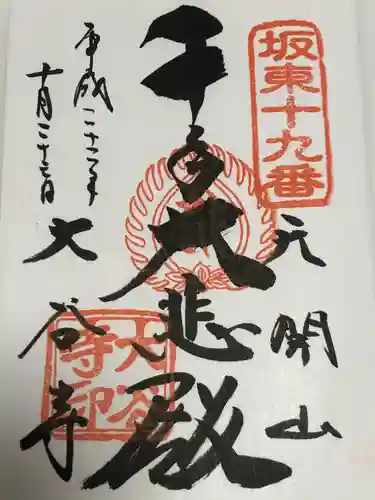 坂東十九番
天開山
千手大悲殿
平成二十二年
十月二十三日
大谷寺
大谷寺印